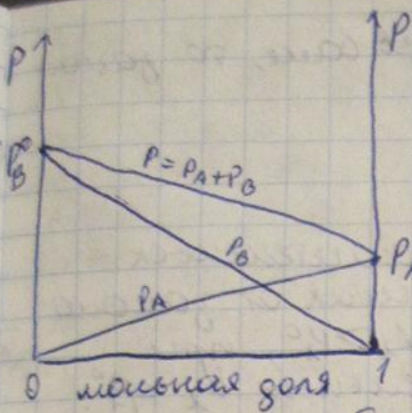 P
P
P°B
P = PA + PB
PB
PA
PA
0 мольная доля 1